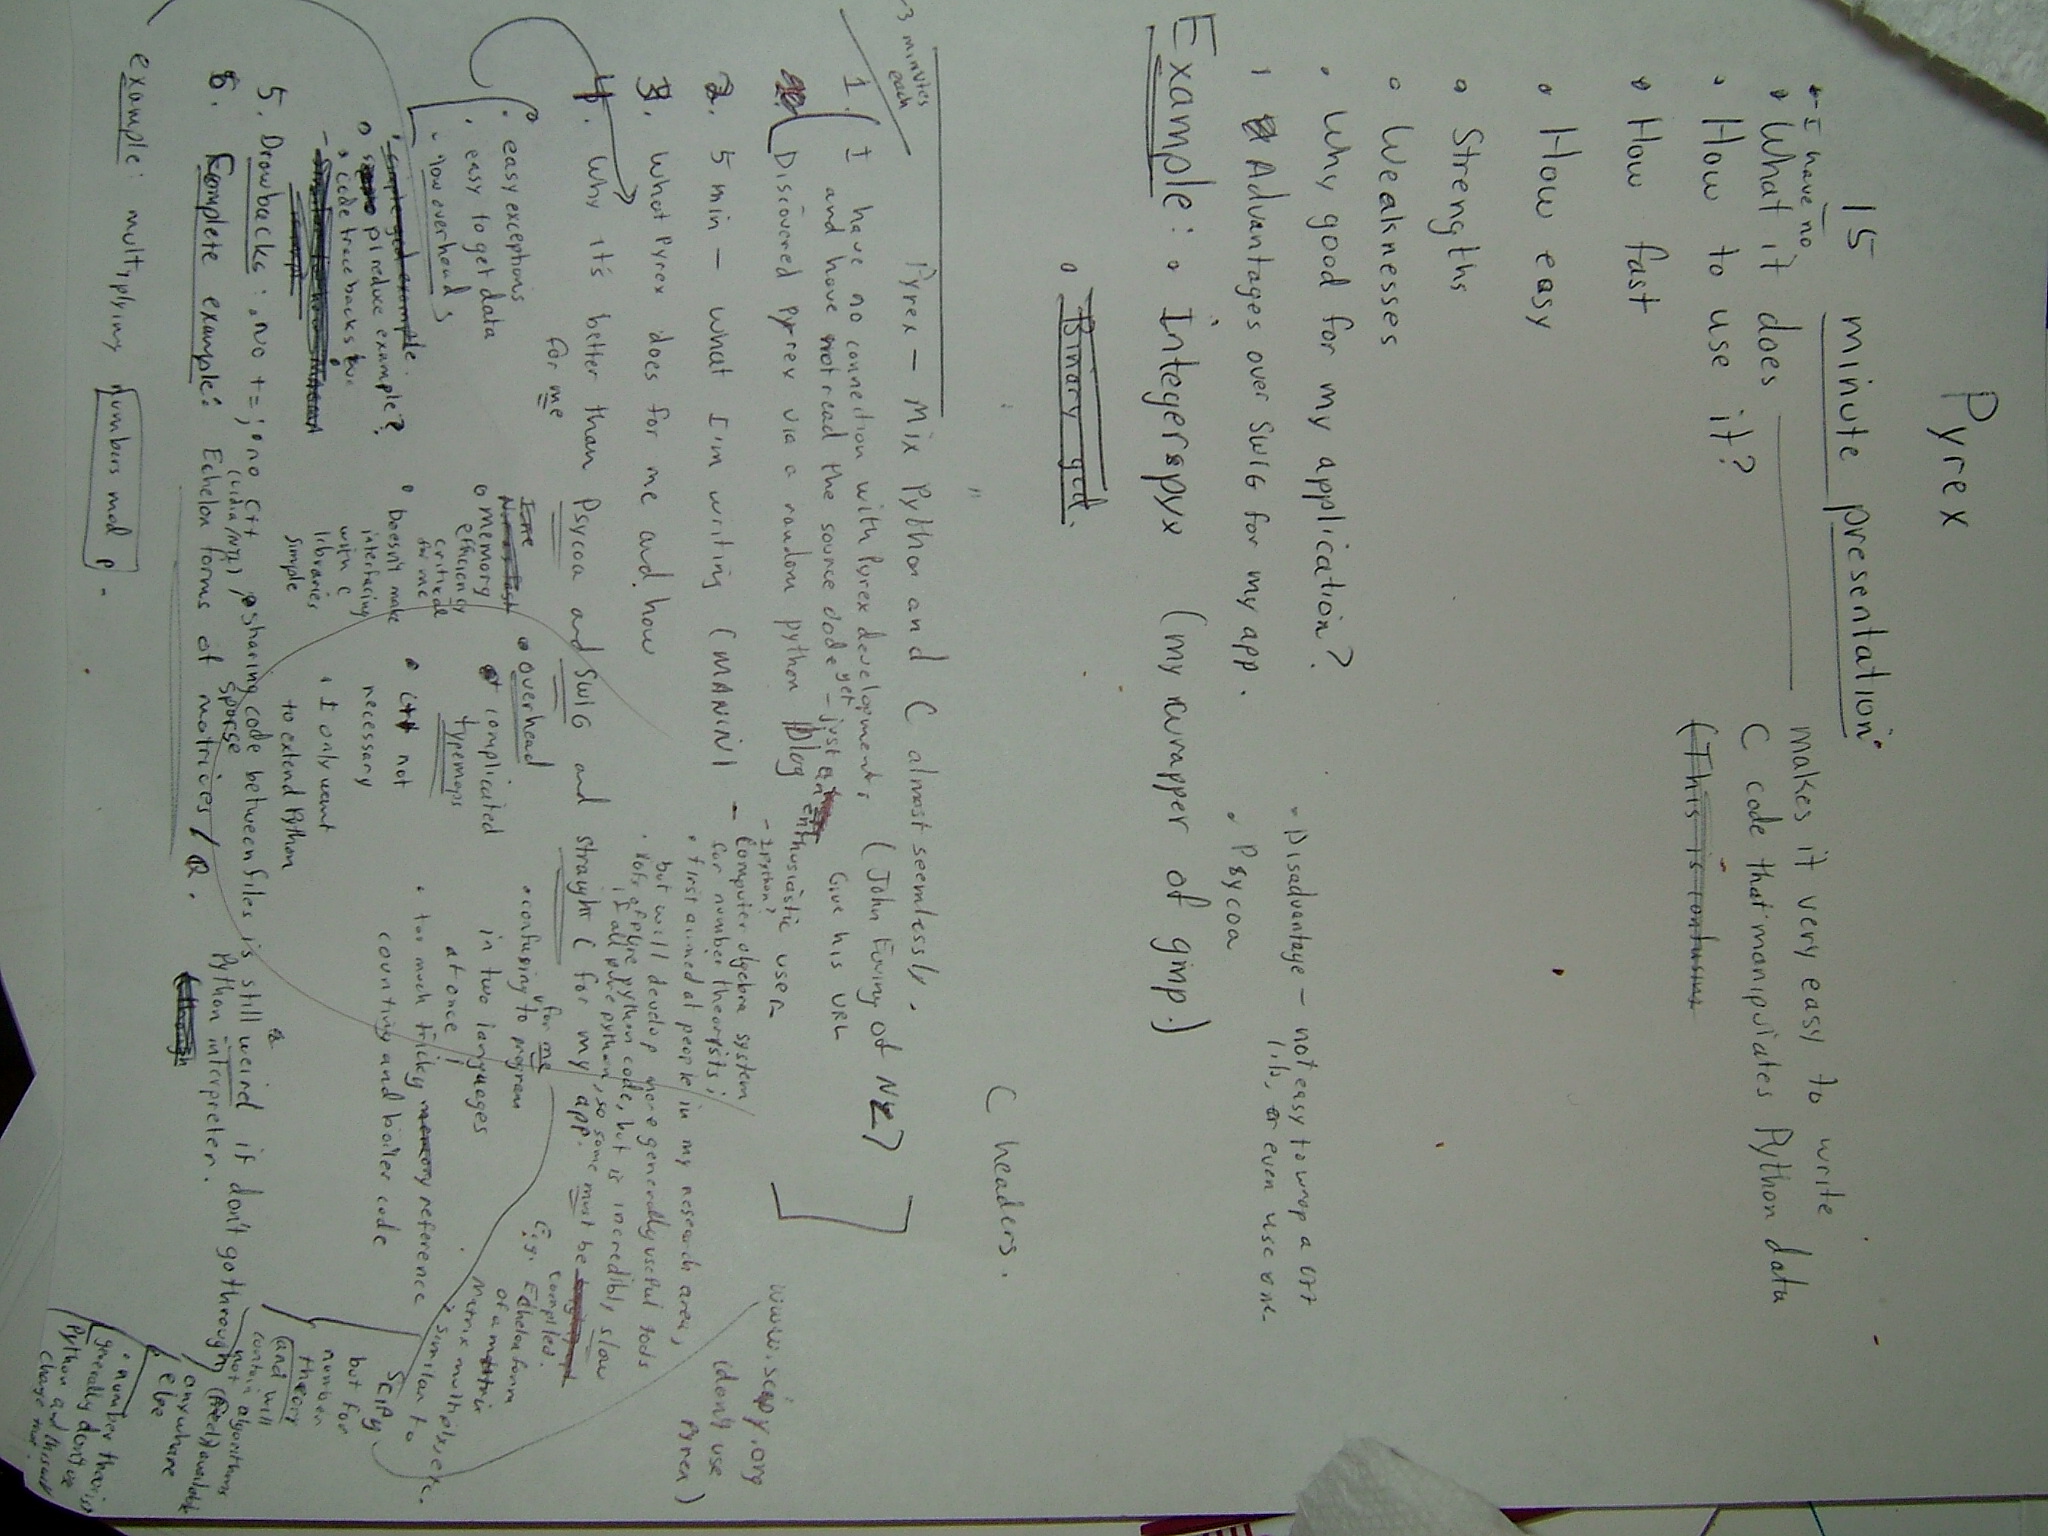 Pyrex
15 minute presentation
- I have no
• What it does
makes it very easy to write
C code that manipulates Python data
• How to use it?
(This is confusing
• How fast
• How easy
• Strengths
• Weaknesses
• Why good for my application?
• Disadvantage - not easy to wrap a C++
lib, or even use one
Advantages over SWIG for my app.
• Psycoa
Example: • Integer.pyx (my wrapper of gmp.)
• Binary gcd.
C headers.
3 minutes
each
Pyrex - Mix Python and C almost seemlessly.
1. I have no connection with Pyrex development, (John Ewing of NZ?)
and have not read the source code yet - just an enthusiastic user
Give his URL
Discovered Pyrex via a random python Blog
- IPython?
www.scipy.org
(don't use
Pyrex)
2. 5 min - What I'm writing (MANIN)
- Computer algebra system
for number theorists;
• first aimed at people in my research area,
but will develop more generally useful tools
• lots of pure python code, but is incredibly slow
if all pure python, so some must be compiled.
3. What Pyrex does for me and how
4. Why it's better than Psycoa and SWIG and straight C for my app.
for me
E.g. Echelon form
of a matrix
matrix multiply, etc.
• easy exceptions
• easy to get data
• low overheads
• simple gcd example.
• produce example?
• code tracebacks
• memory
efficiency
critical
for me
• Doesn't make
interfacing
with C
libraries
simple
• overhead
• complicated
typemaps
• C++ not
necessary
• I only want
to extend Python
• confusing for me to program
in two languages
at once!
• too much tricky memory reference
counting and boiler code
• similar to
SciPy
but for
number
theory
(and will
contain algorithms
not (free) available
anywhere
else
• number theorists
generally don't use
Python and this will
change that.
5. Drawbacks: • no +=; • no C++ • sharing code between files is still weird if don't go through
(Lidia/NTL)
Python interpreter.
6. Complete example: Echelon forms of sparse matrices / Q.
(though
example: multiplying numbers mod p.